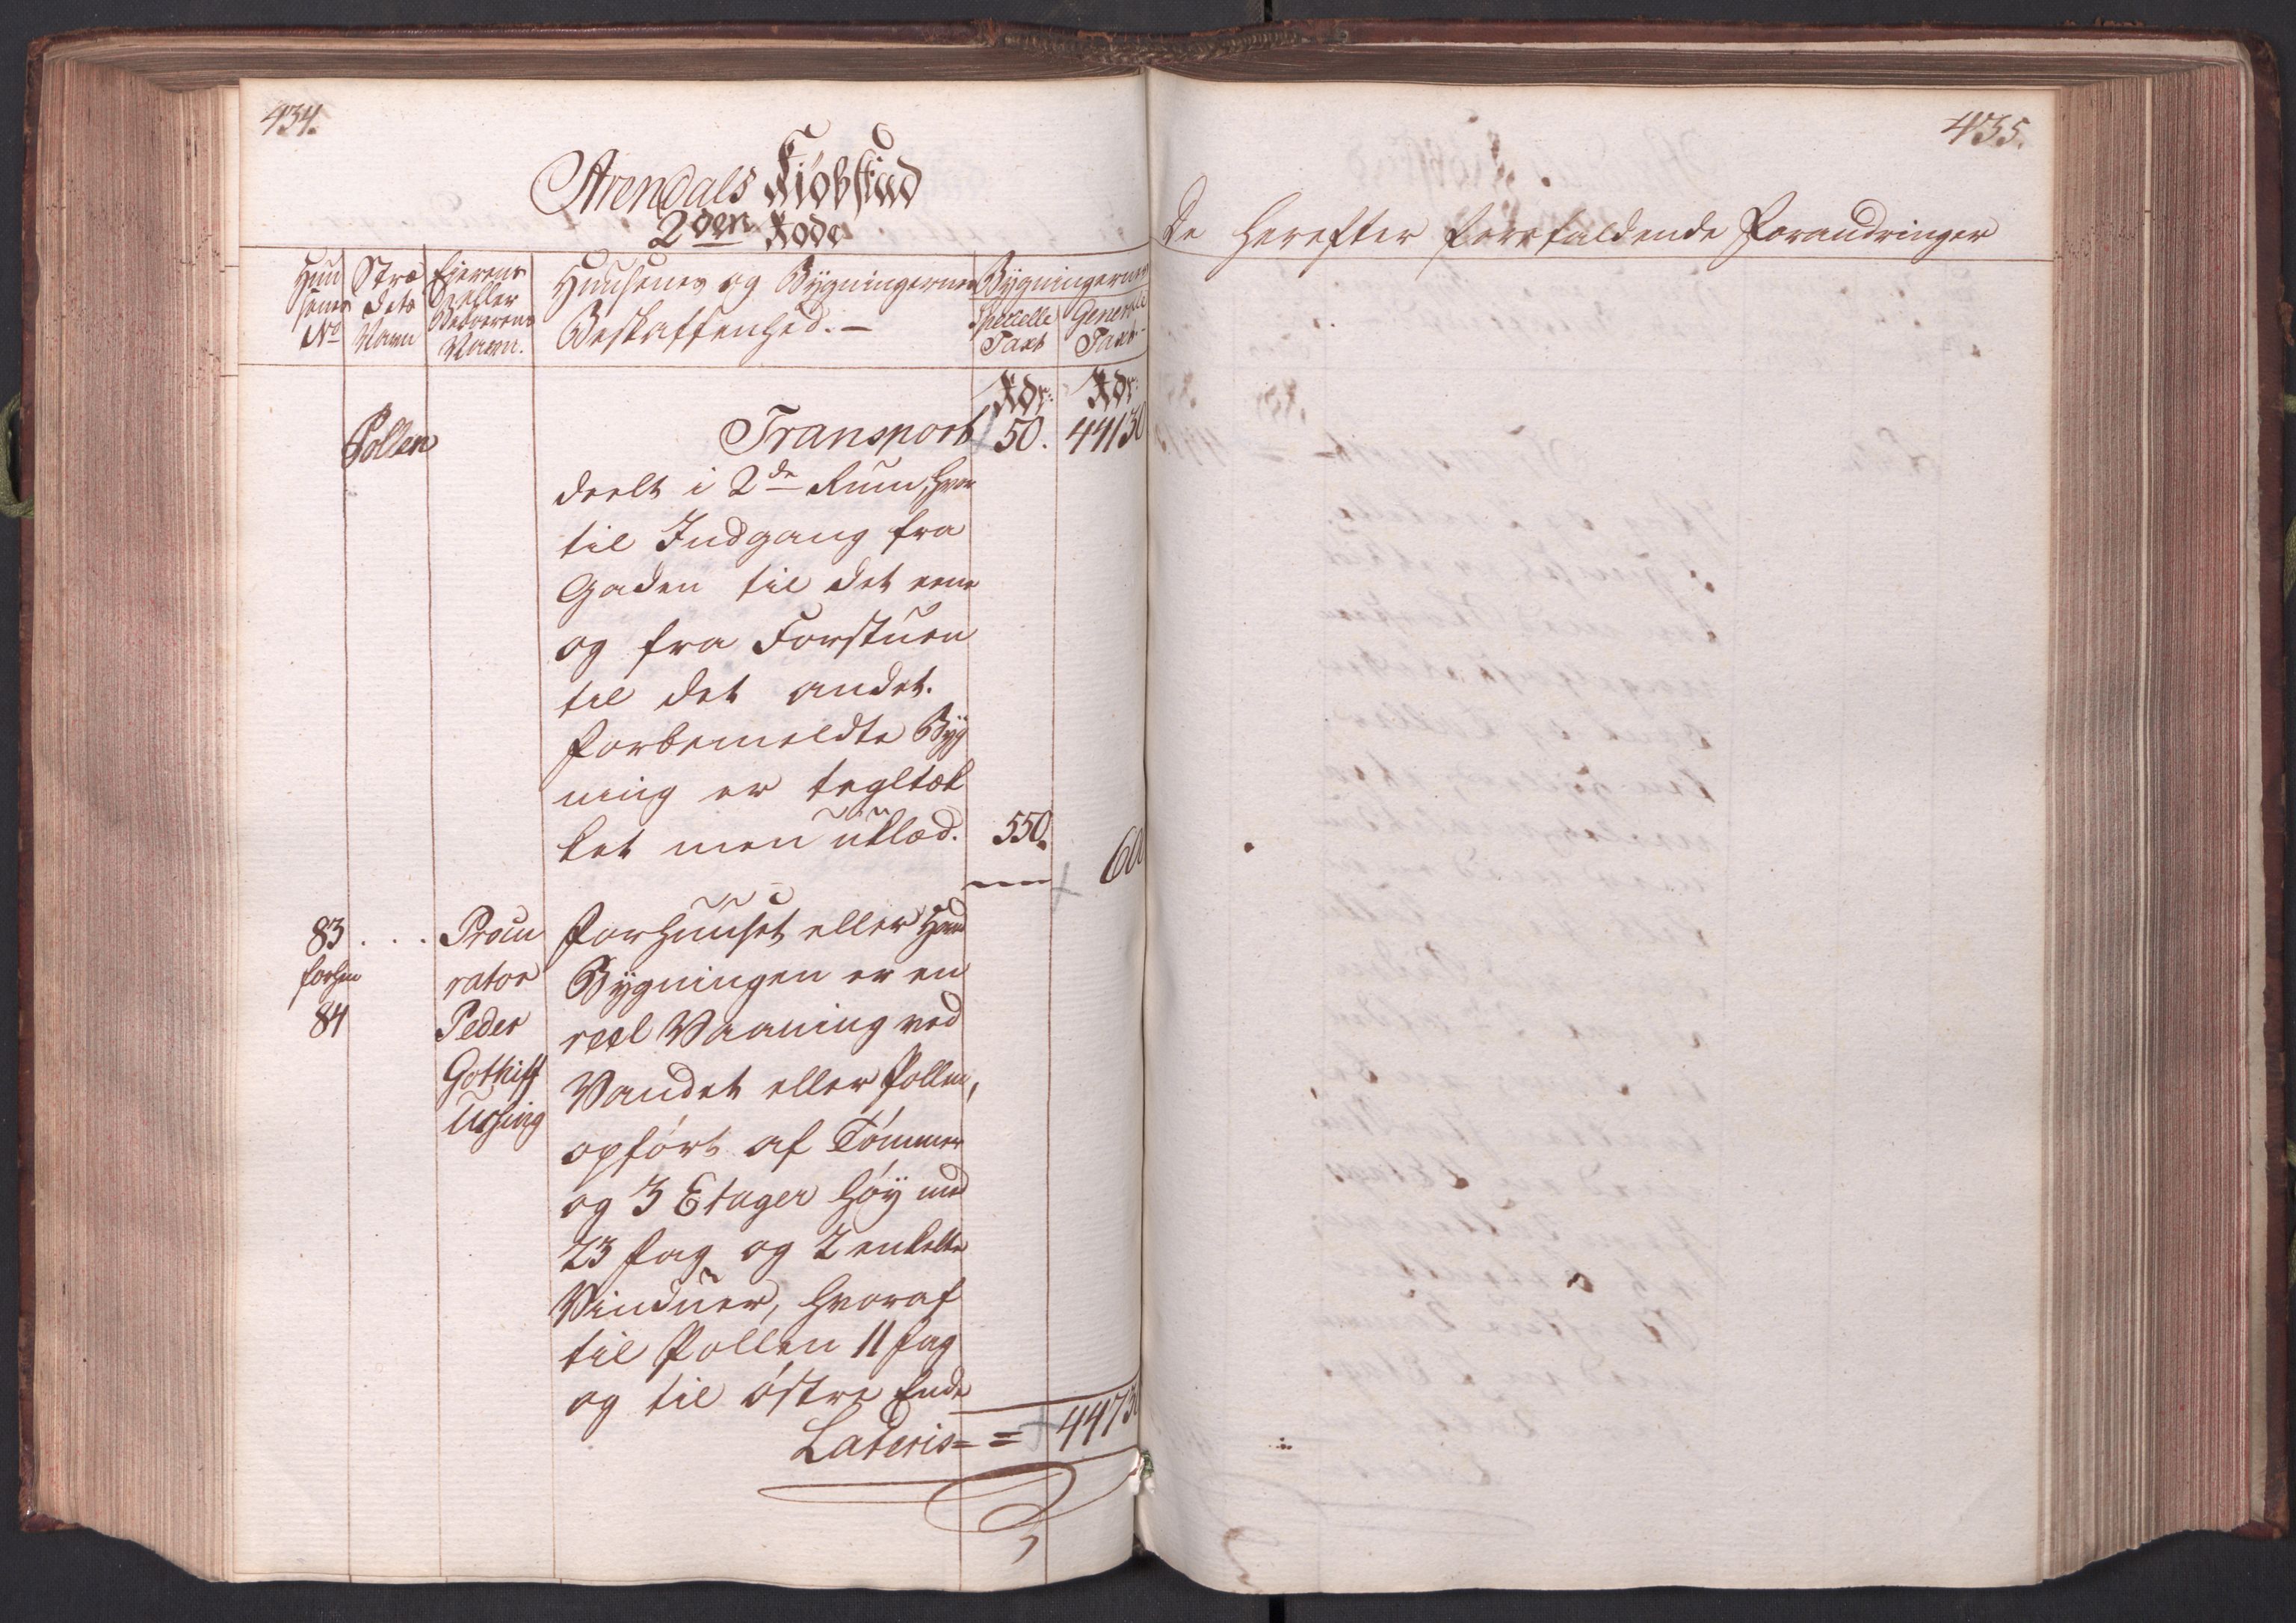 434.
Arendals Kiøbstæd
2den Rode
Huu
senes
No
Stræ
dets
Navn
Eierens
eller
Beboerens
Navn.
Huusenes og Bygningernes
Beskaffenhed. –
Bygningernes
Specielle
Taxt
Generale
Taxt
Rdr: Rdr:
Pollen Transport 50. 44130
deelt i 2de Rum, hvor
til Indgang fra
Gaden til det eene
og fra Forstuen
til det andet.
Forbemeldte Byg
ning er tegltæk
ket men uklæd. 550.
600
83 . . . Procu Forhuuset eller Hoved
forhen rator Bygningen er en
84 Peder reel Vaaning ved
Gothilf Vandet eller Pollen,
Ussing
opført af Tømmer
og 3 Etager høy med
23 Fag og 2 enkelte
Vinduer, hvoraf
til Pollen 11 Fag
og til østre Ende
Lateris = = 44730
435.
De herefter forefaldende Forandringer